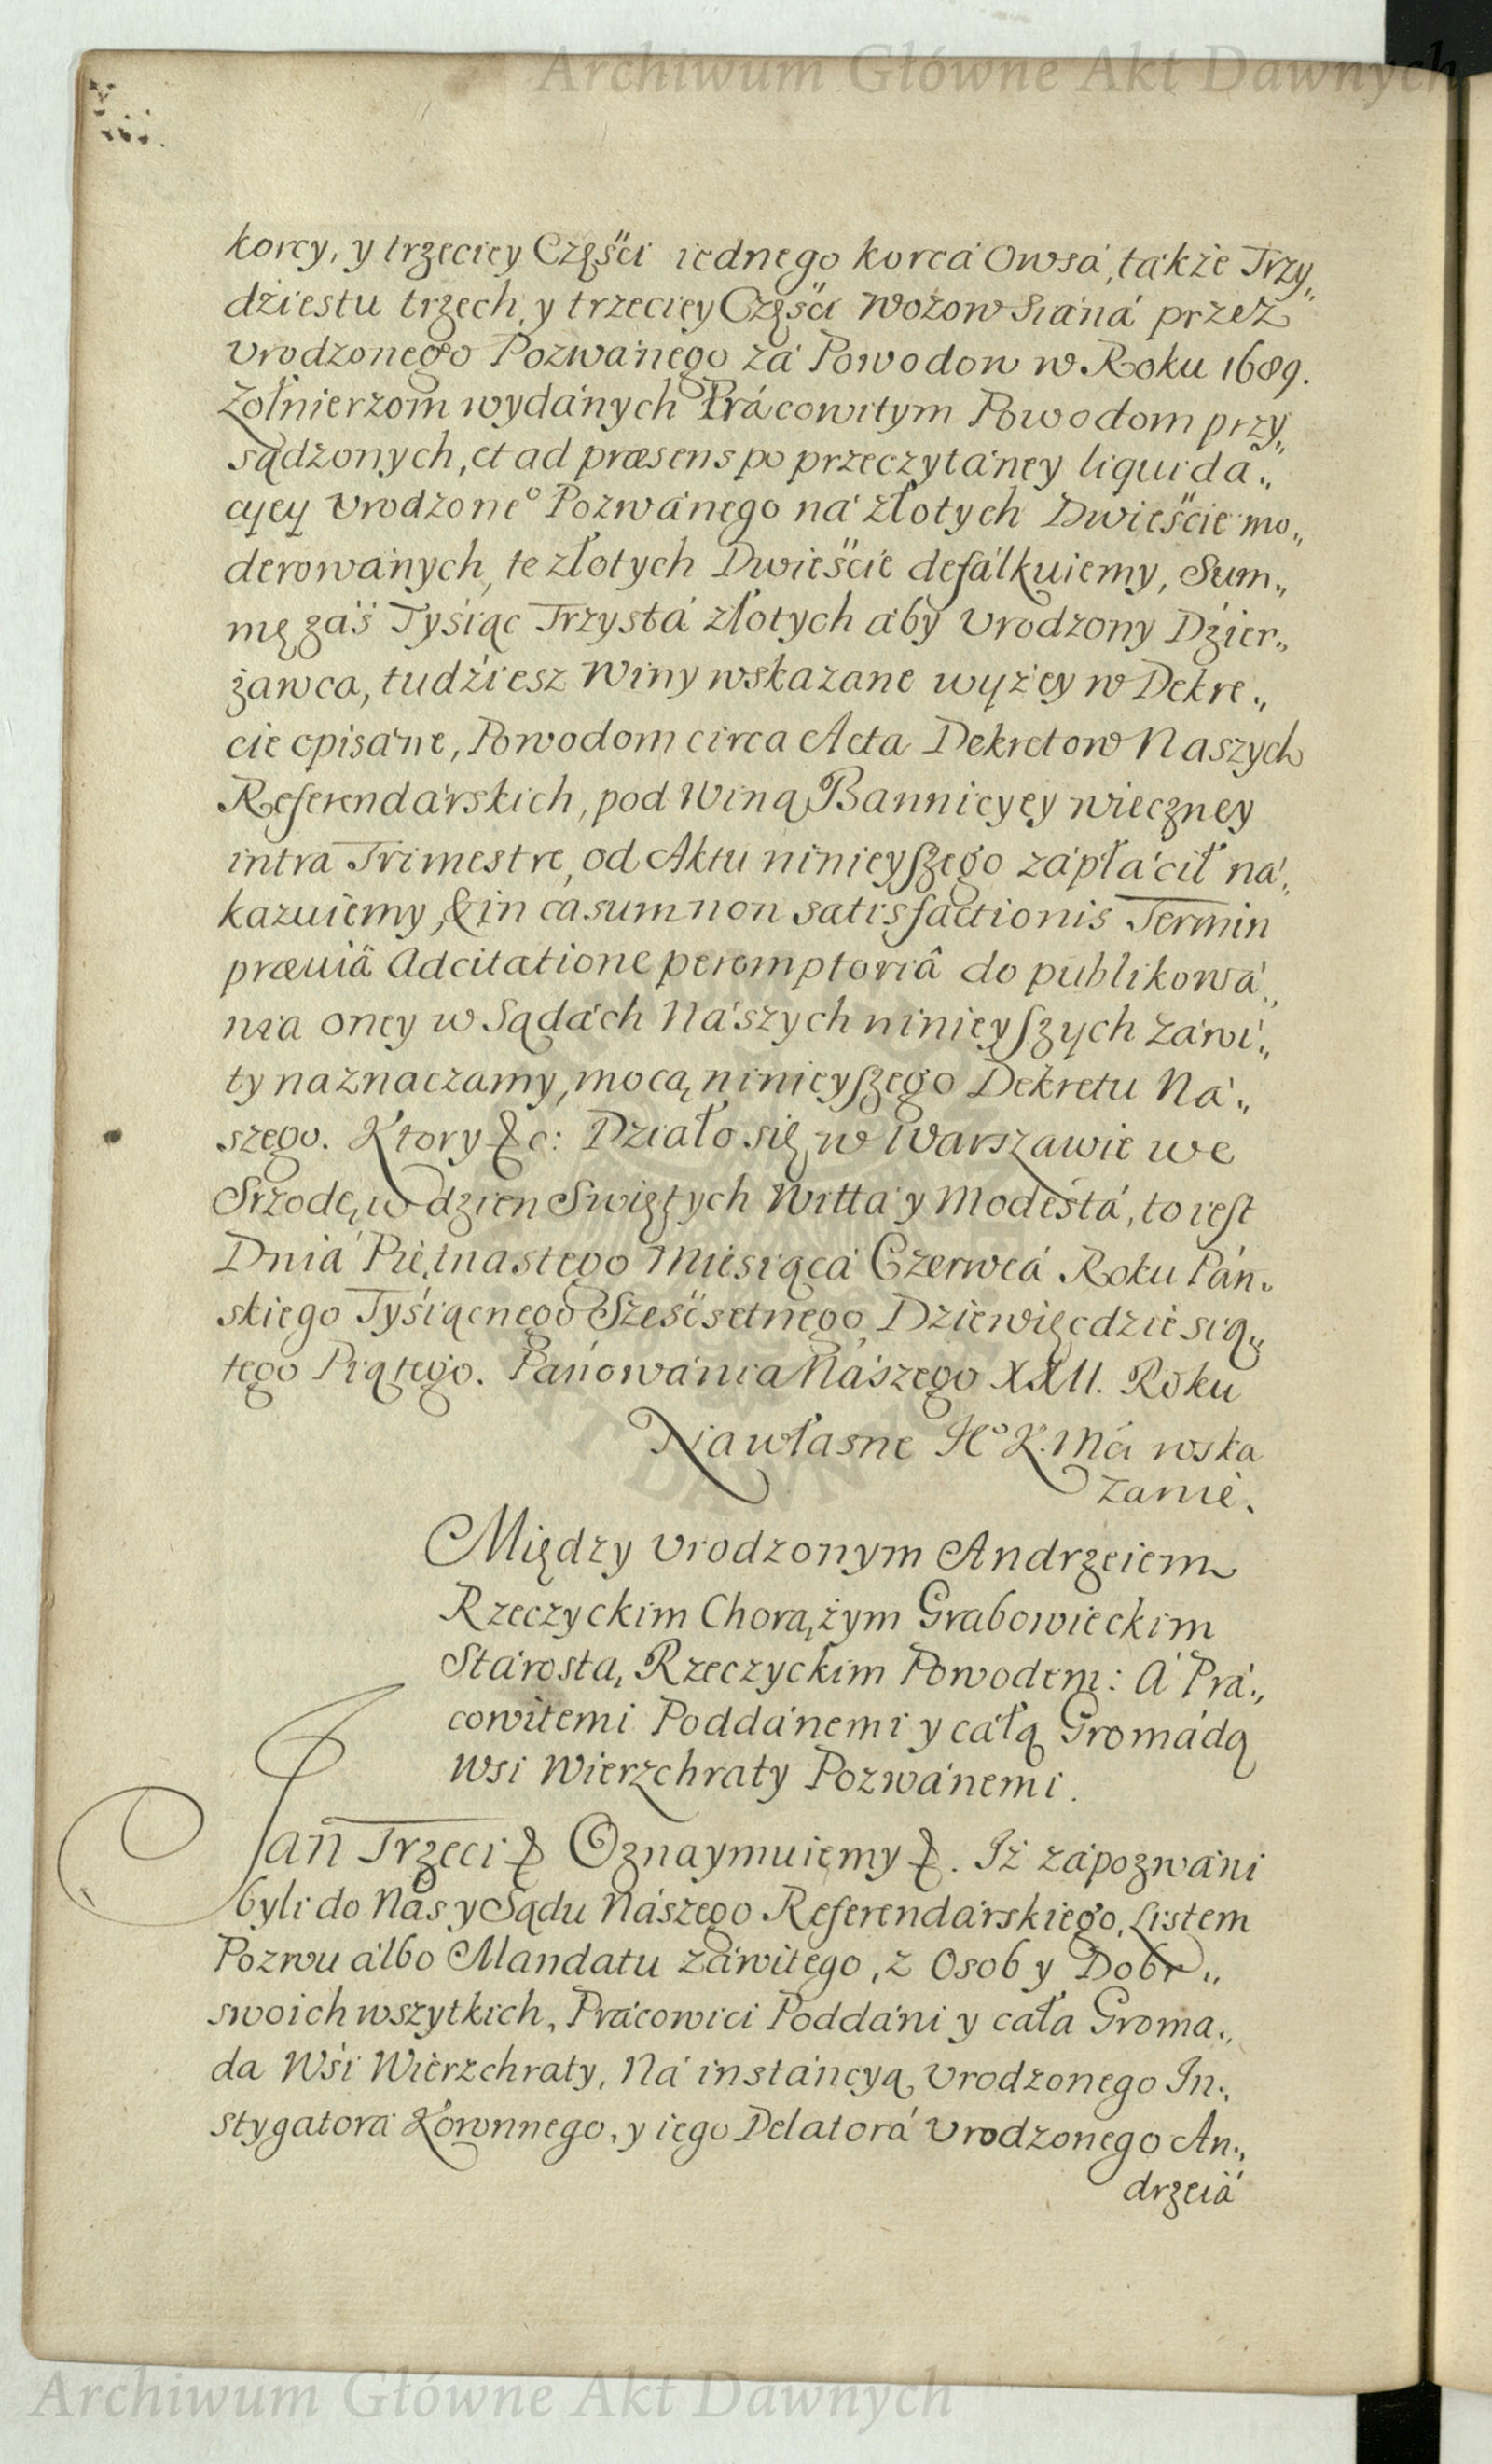 Archiwum Główne Akt Dawnych
korcy, y trzeciey Częśći iednego korcá Owsá, tákże Trzy„
dźiestu trzech, y trzeciey Częśći Wozow Siáná przez
Urodzonego Pozwánego zá Powodow w Roku 1689.
Zołnierzom wydánych Prácowitym Powodom przy„
sądzonych, et ad præsens po przeczytáney liquida„
cyey Urodzoneº Pozwánego ná złotych Dwieśćie mo„
derowánych, te złotych Dwieśćie defálkuiemy, Sum„
mę záś Tyśiąc Trzystá złotych áby Urodzony Dzier„
żawca, tudźiesz Winy wskazane wyżey w Dekre„
cie opisáne, Powodom circa Acta Dekretow Naszych
Referendárskich, pod Winą Bannicyey wieczney
intra Trimestre, od Aktu ninieyszego zápłáćił ná„
kazuiemy, & in casum non satisfactionis Termin
præuiâ Adcitatione peremptoriâ do publikowá„
nia oney w Sądách Nászych ninieyszych záwi„
ty naznaczamy, mocą ninieyszego Dekretu Ná„
szego. Ktory &c: Działo się w Warszawie we
Srzodę, w dzien Swiętych Witta y Modestá, to iest
Dniá Piętnastego Miesiącá Czerwcá Roku Pán„
skiego Tyśiącnego Sześćsetnego Dziewięćdzieśią„
tego Piątego. Pánowánia Nászego XXII. Roku
Na własne Jº K. Mći wska
zanie.
Między Urodzonym Andrzeiem
Rzeczyckim Chorążym Grabowieckim
Stárostą, Rzeczyckim Powodem: á Prá„
cowitemi Poddánemi y cáłą Gromádą
Wsi Wierzchraty Pozwánemi.
Jan Trzeci & Oznaymuiemy &. Iż zápozwáni
byli do Nas y Sądu Nászego Referendárskiego, Listem
Pozwu álbo Mandatu záwitego, z Osob y Dobr„
swoich wszytkich, Prácowici Poddáni y cáła Groma„
da Wśi Wierzchraty, Ná instáncyą Urodzonego In„
stygatora Koronnego, y iego Delatorá Urodzonego An„
drzeiá
Archiwum Główne Akt Dawnych